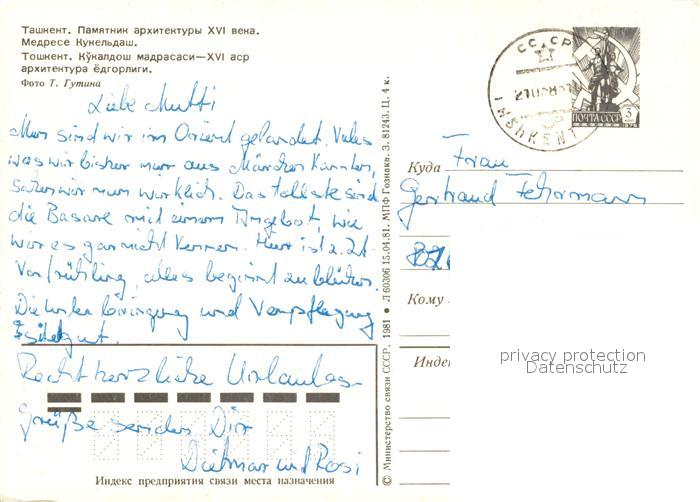 Ташкент. Памятник архитектуры XVI века.
Медресе Кукельдаш.
Тошкент. Кўкалдош мадрасаси—XVI аср
архитектура ёдгорлиги.
Фото Т. Гутина
Liebe Mutti
Nun sind wir im Orient gelandet. Vieles
was wir bisher nur aus Märchen kannten,
sahen wir nun wirklich. Das tollste sind
die Basare mit einem Angebot, wie
wir es gar nicht kennen. Hier ist z. Zt
Vorfrühling, alles beginnt zu blühen.
Die Unterbringung und Verpflegung
ist gut.
Recht herzliche Urlaubs-
grüße senden Dir
Dietmar und Rosi
Индекс предприятия связи места назначения
© Министерство связи СССР. 1981 • Л 60306 15.04.81. МПФ Гознака. З. 81243. Ц. 4 к.
СССР
TASHKENT
ПОЧТА СССР 3
Куда Frau
Gertraud Fehrmann
Кому
Индекс
privacy protection
Datenschutz